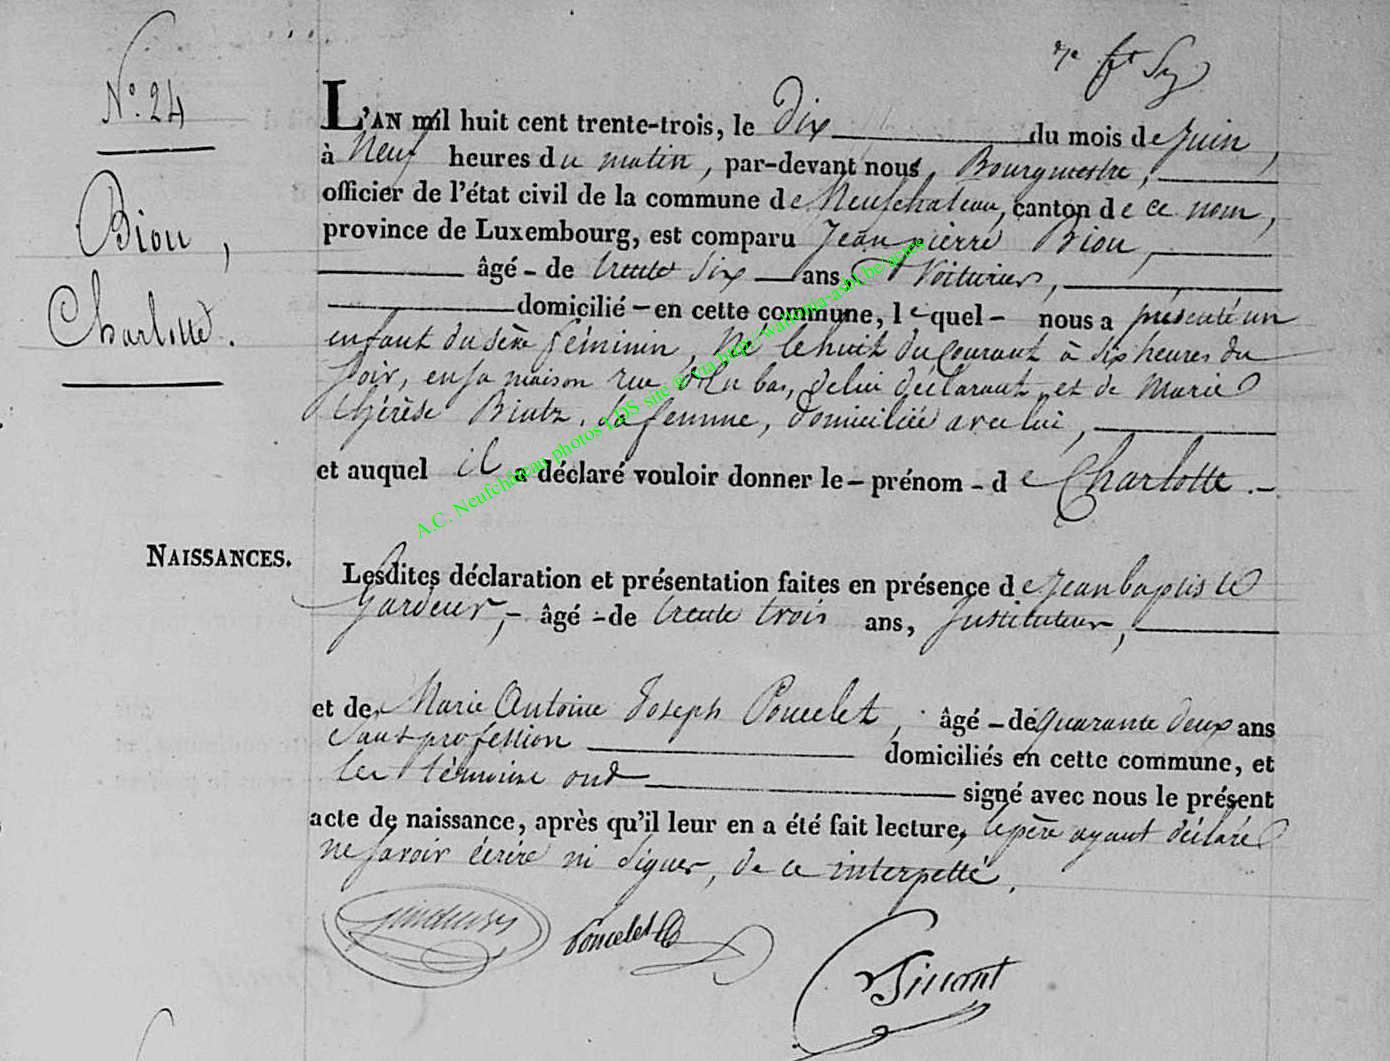 7e ft
N°. 24
L'AN mil huit cent trente-trois, le Dix du mois de Juin,
à Neuf heures du matin, par-devant nous, Bourgmestre,
officier de l'état civil de la commune de Neufchateau, canton de ce nom,
Biou,
Charlotte.
province de Luxembourg, est comparu Jean pierre Biou,
âgé - de trente six ans, Voiturier,
domicilié - en cette commune, lequel - nous a présenté un
enfant du sèxe féminin, Né le huit du Courant à six heures du
soir, en sa maison rue du bas, de lui déclarant et de Marie
thérèse, sa femme, domiciliée avec lui,
et auquel il a déclaré vouloir donner le - prénom - de Charlotte. -
NAISSANCES.
Lesdites déclaration et présentation faites en présence de Jean baptiste
Gardeur, - âgé - de trente trois ans, Instituteur,
et de Marie Antoine Joseph Poncelet, âgé - de quarante deux ans
sans profession domiciliés en cette commune, et
les témoins ont signé avec nous le présent
acte de naissance, après qu'il leur en a été fait lecture, le père ayant déclaré
ne savoir écrire ni signer, de ce interpellé.
Poncelet
A.C. Neufchâteau photos LDS site @ via http://wallonia-asbl.be/actes